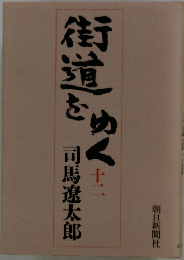 街道を
ゆく
十二
司馬遼太郎
朝日新聞社